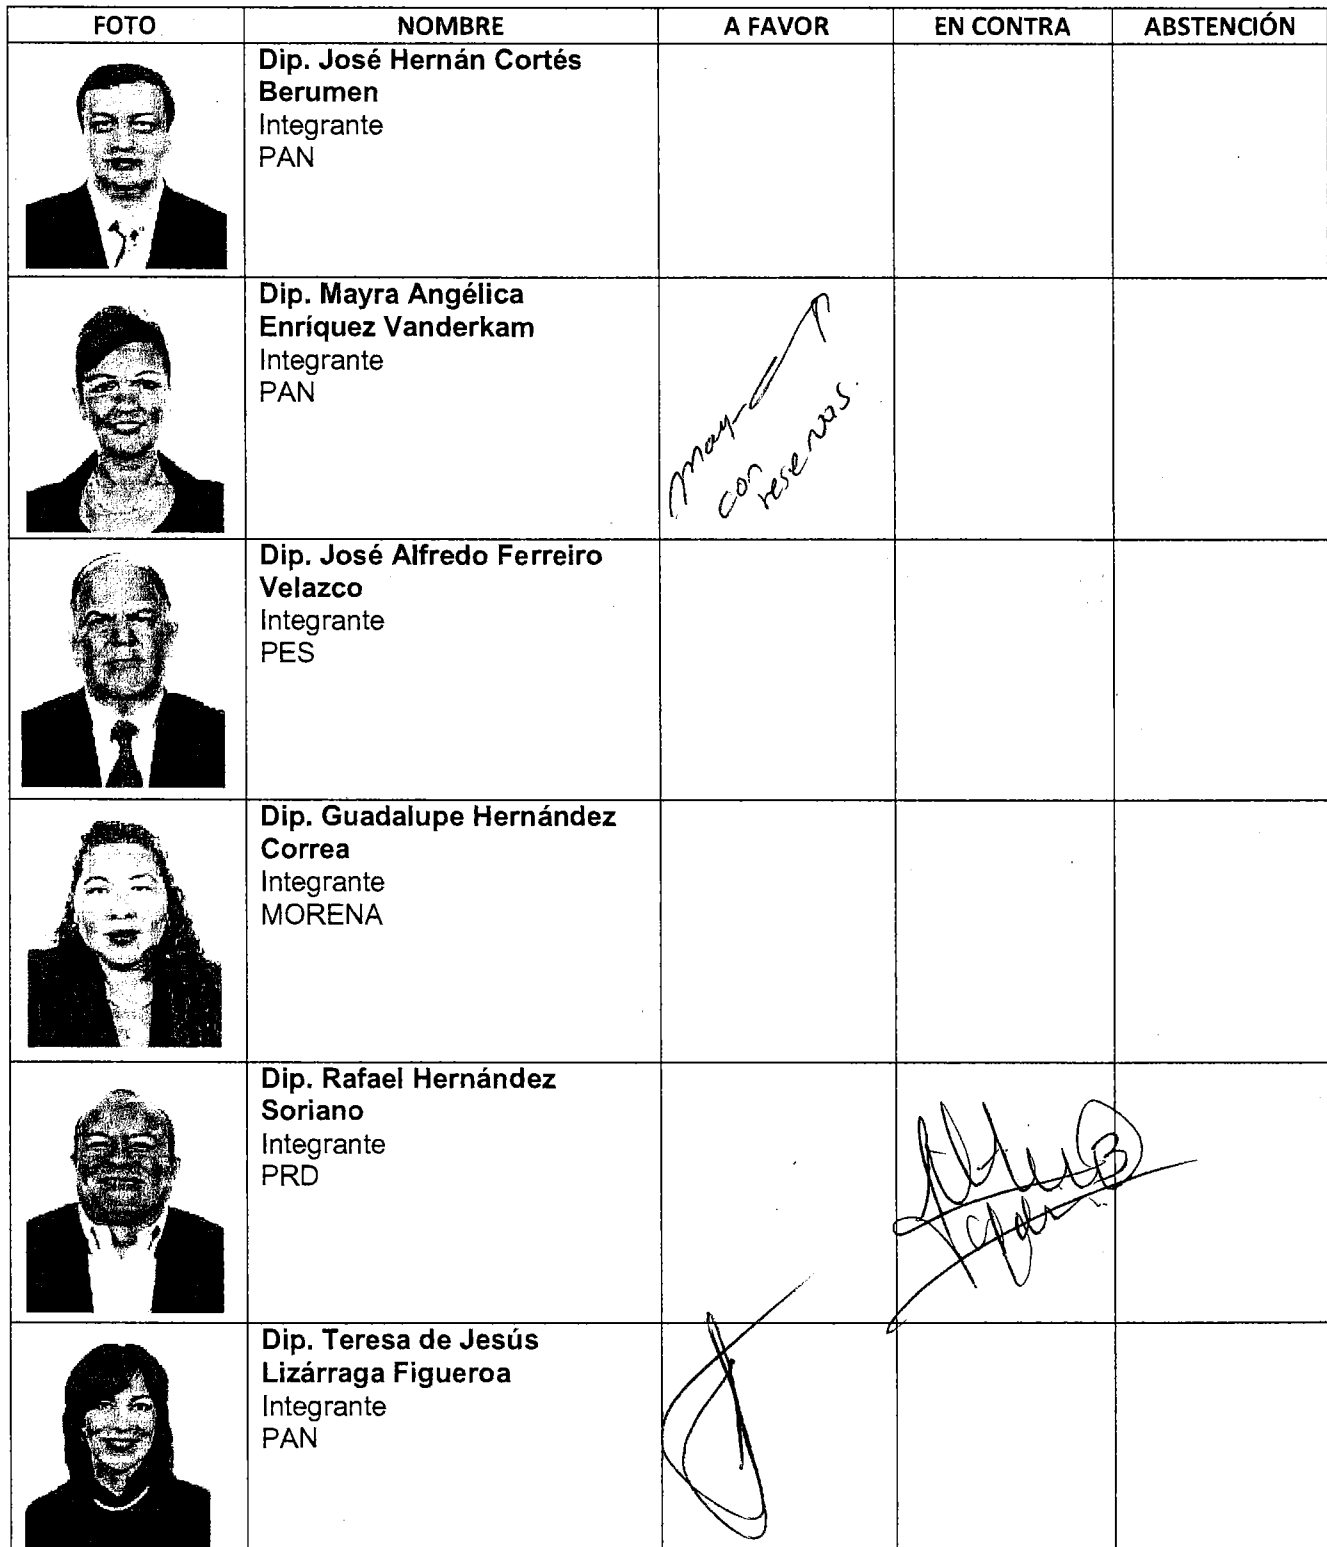 FOTO NOMBRE A FAVOR EN CONTRA ABSTENCIÓN
Dip. José Hernán Cortés
Berumen
Integrante
PAN
Dip. Mayra Angélica
Enríquez Vanderkam
Integrante
PAN
con
reservas.
Dip. José Alfredo Ferreiro
Velazco
Integrante
PES
Dip. Guadalupe Hernández
Correa
Integrante
MORENA
Dip. Rafael Hernández
Soriano
Integrante
PRD
Dip. Teresa de Jesús
Lizárraga Figueroa
Integrante
PAN